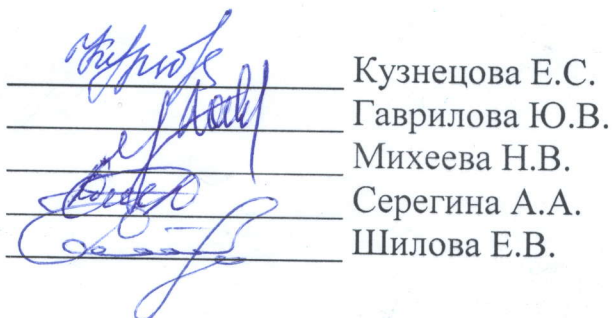 Кузнецова Е.С.
Гаврилова Ю.В.
Михеева Н.В.
Серегина А.А.
Шилова Е.В.